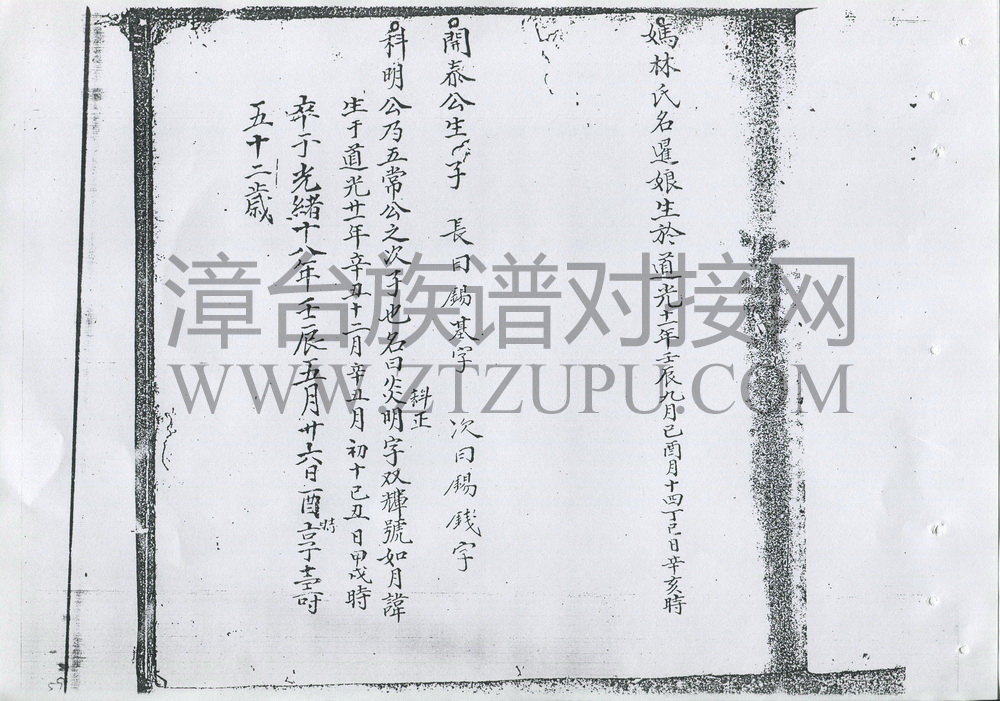 媽林氏名暹娘生於道光十二年壬辰九月己酉月十四丁巳日辛亥時
開泰公生子 長曰錫基字 次曰錫錢字
科明公乃五常公之次子也名曰炎明字双輝號如月諱
科正
生于道光廿一年辛丑十二月辛丑月初十己丑日甲戌時
卒于光緒十八年壬辰五月廿六日酉時享壽
五十二歲
漳台族谱对接网
WWW.ZTZUPU.COM